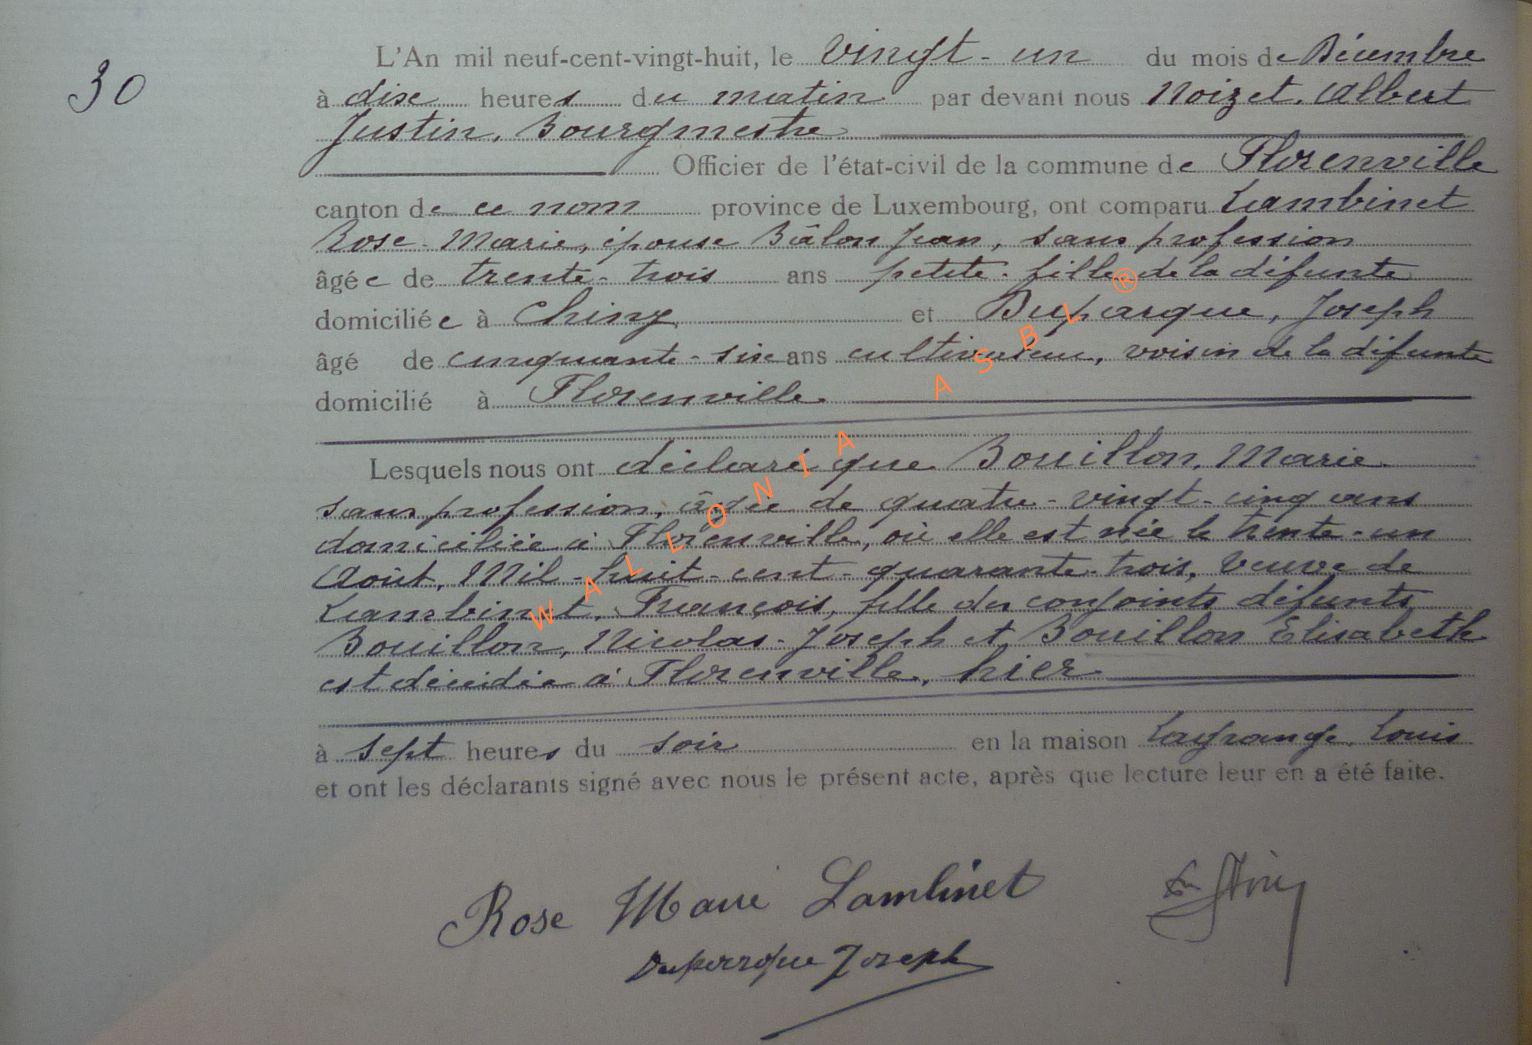 30
L'An mil neuf-cent-vingt-huit, le vingt-un du mois de Décembre
à dix heures du matin par devant nous Noizet, Albert
Justin, Bourgmestre
Officier de l'état-civil de la commune de Florenville
canton de ce nom province de Luxembourg, ont comparu Lambinet
Rose-Marie, épouse Bâlon Jean, sans profession
âgée de trente-trois ans petite-fille de la défunte
domiciliée à Chiny et Duparque, Joseph
âgé de cinquante-six ans cultivateur, voisin de la défunte
domicilié à Florenville
Lesquels nous ont déclaré que Bouillon, Marie
sans profession, âgée de quatre-vingt-cinq ans
domiciliée à Florenville, où elle est née le trente-un
Août, Mil-huit-cent-quarante-trois, Veuve de
Lambinet, François, fille des conjoints défunts
Bouillon, Nicolas-Joseph et Bouillon Elisabeth
est décédée à Florenville, hier
à sept heures du soir en la maison Lagrange, Louis
et ont les déclarants signé avec nous le présent acte, après que lecture leur en a été faite.
Rose Marie Lambinet
Duparque Joseph
WALLONIA ASBL ®